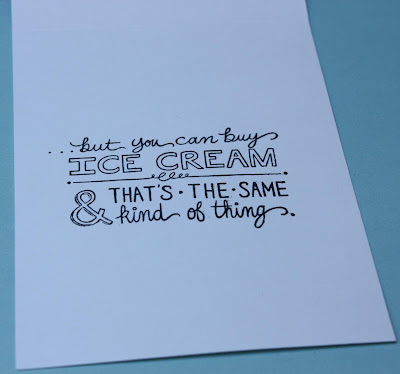 ...but you can buy
ICE CREAM
& THAT'S·THE·SAME
kind of thing.